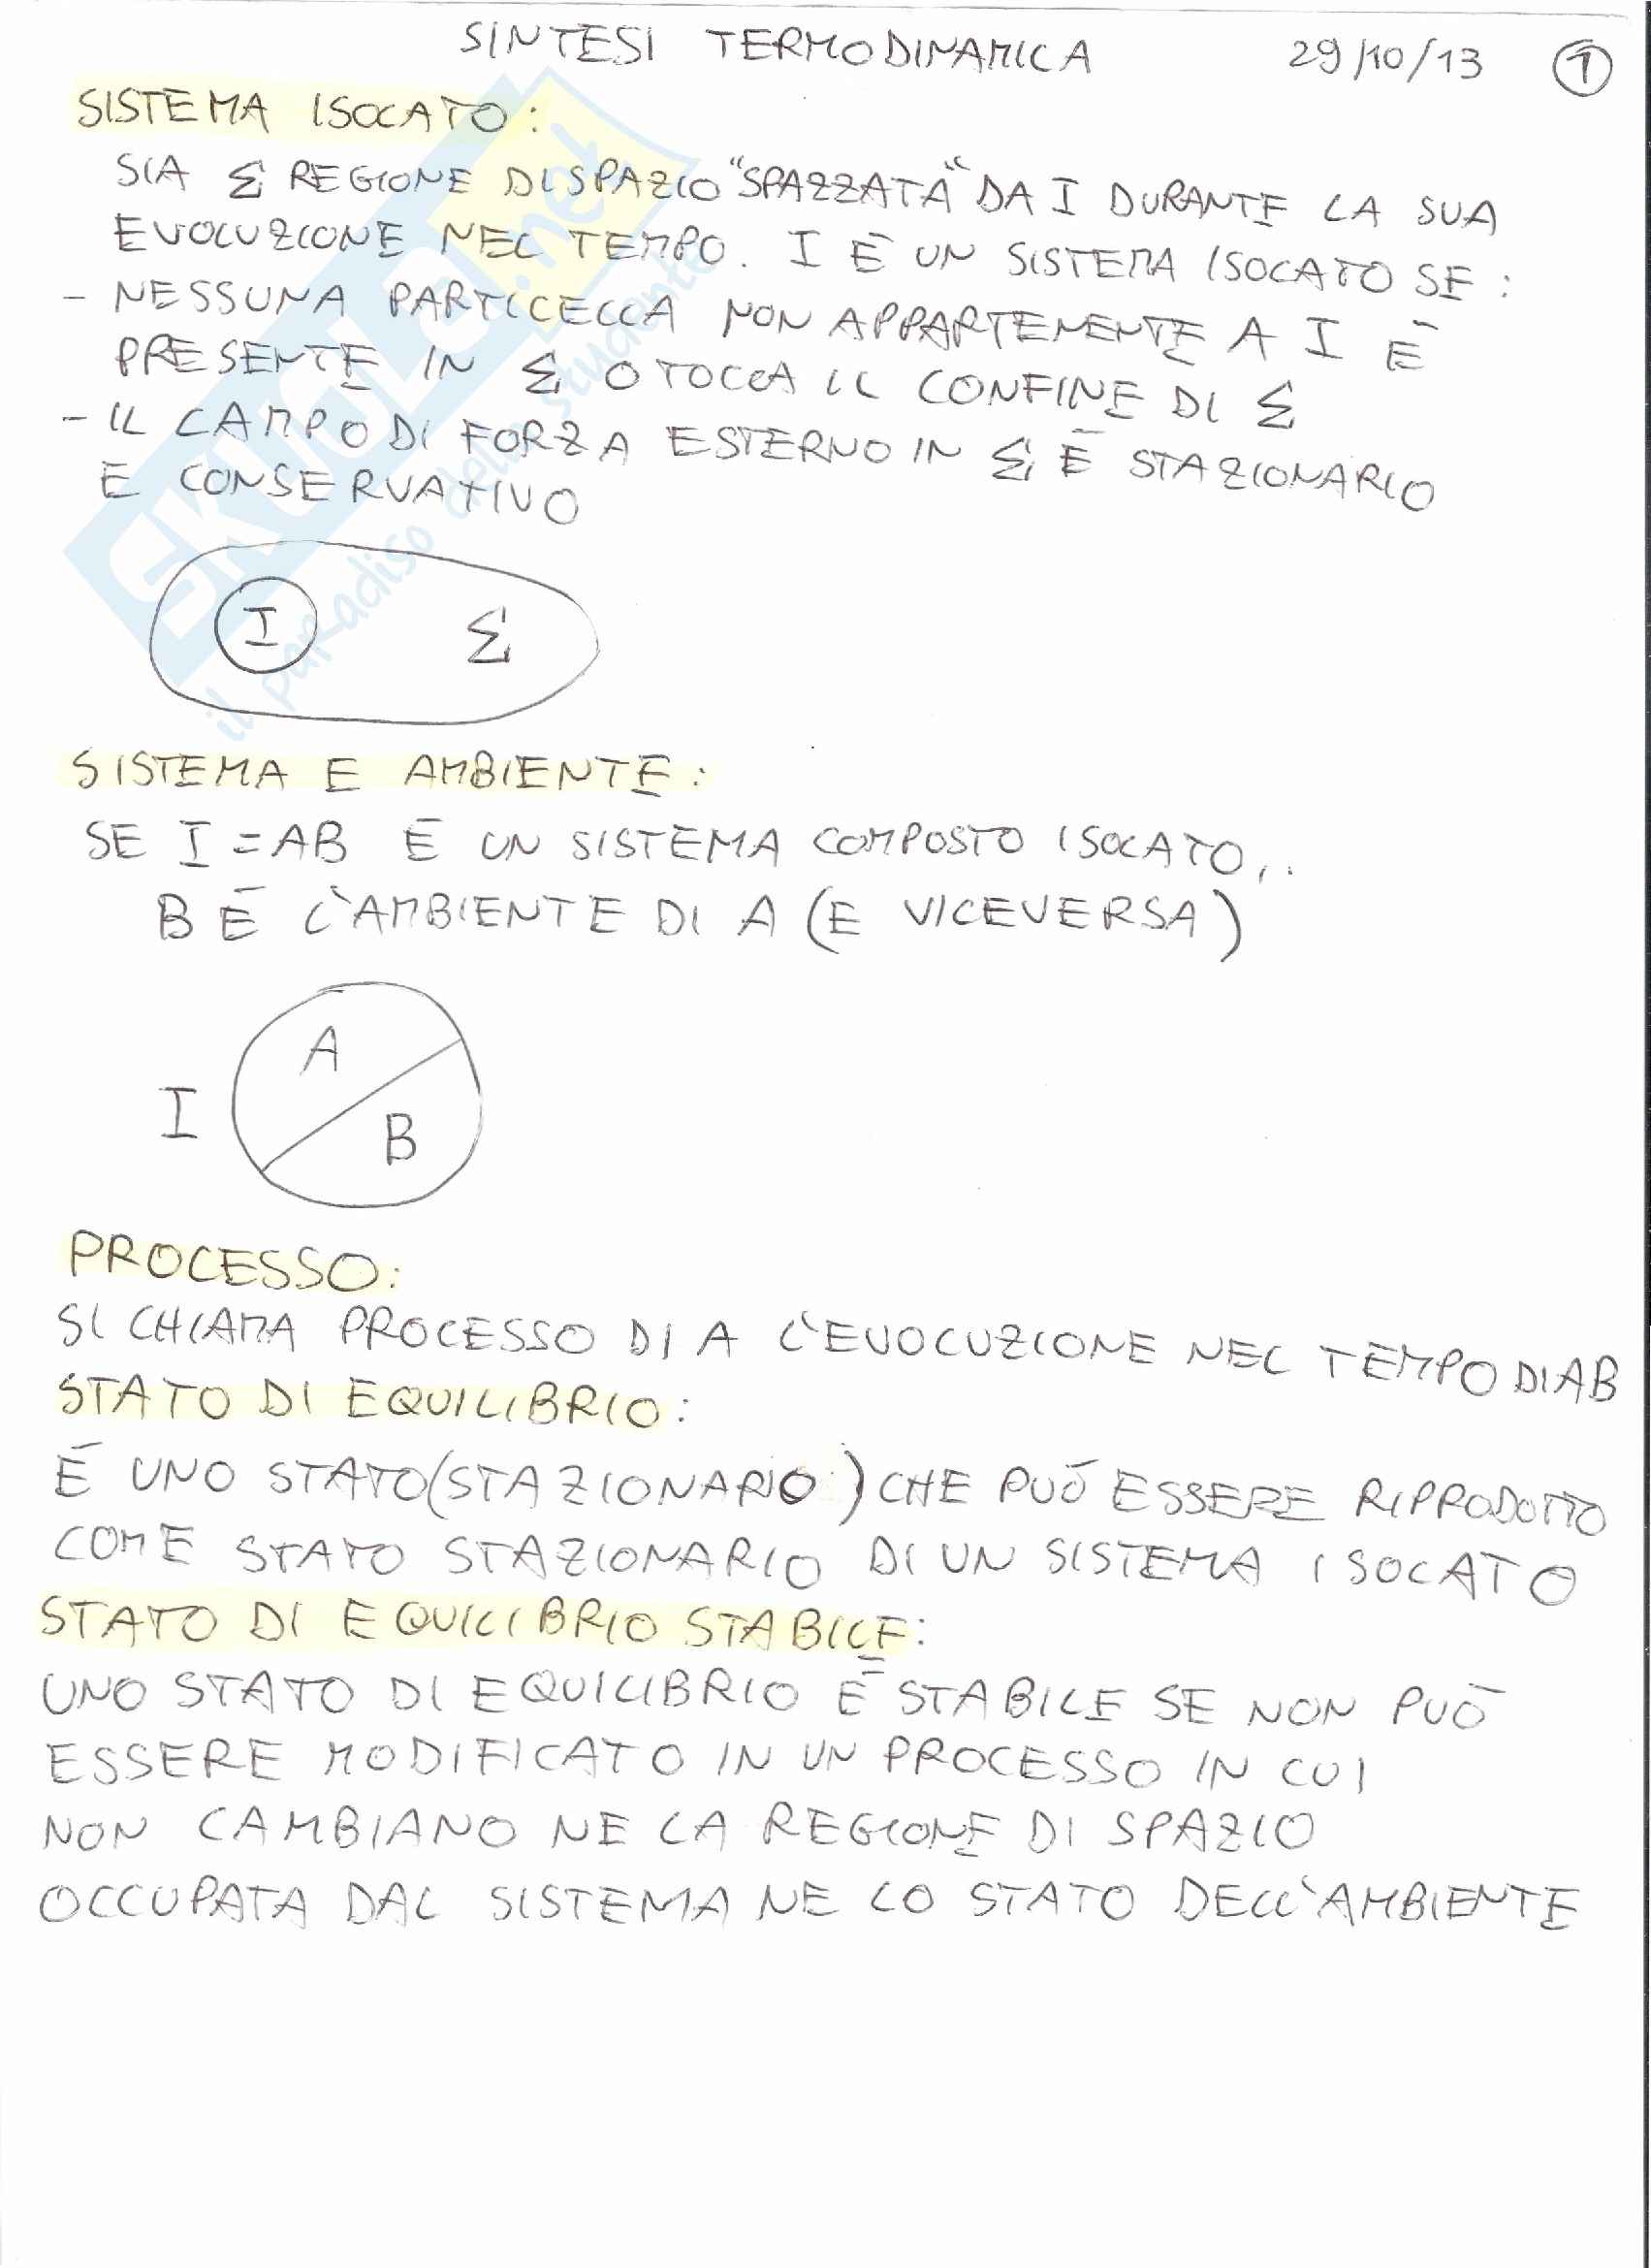 SINTESI TERMODINAMICA 29/10/13 1
SISTEMA ISOLATO:
SIA Σ REGIONE DI SPAZIO "SPAZZATA" DA I DURANTE LA SUA
EVOLUZIONE NEL TEMPO. I È UN SISTEMA ISOLATO SE:
- NESSUNA PARTICELLA NON APPARTENENTE A I È
PRESENTE IN Σ O TOCCA IL CONFINE DI Σ
- IL CAMPO DI FORZA ESTERNO IN Σ È STAZIONARIO
E CONSERVATIVO
I Σ
SKUOLA.net
il paradiso dello studente
SISTEMA E AMBIENTE:
SE I = AB È UN SISTEMA COMPOSTO ISOLATO,.
B È L'AMBIENTE DI A (E VICEVERSA)
A
I
B
PROCESSO:
SI CHIAMA PROCESSO DI A L'EVOLUZIONE NEL TEMPO DI AB
STATO DI EQUILIBRIO:
È UNO STATO (STAZIONARIO) CHE PUÒ ESSERE RIPRODOTTO
COME STATO STAZIONARIO DI UN SISTEMA ISOLATO
STATO DI EQUILIBRIO STABILE:
UNO STATO DI EQUILIBRIO È STABILE SE NON PUÒ
ESSERE MODIFICATO IN UN PROCESSO IN CUI
NON CAMBIANO NE LA REGIONE DI SPAZIO
OCCUPATA DAL SISTEMA NE LO STATO DELL'AMBIENTE